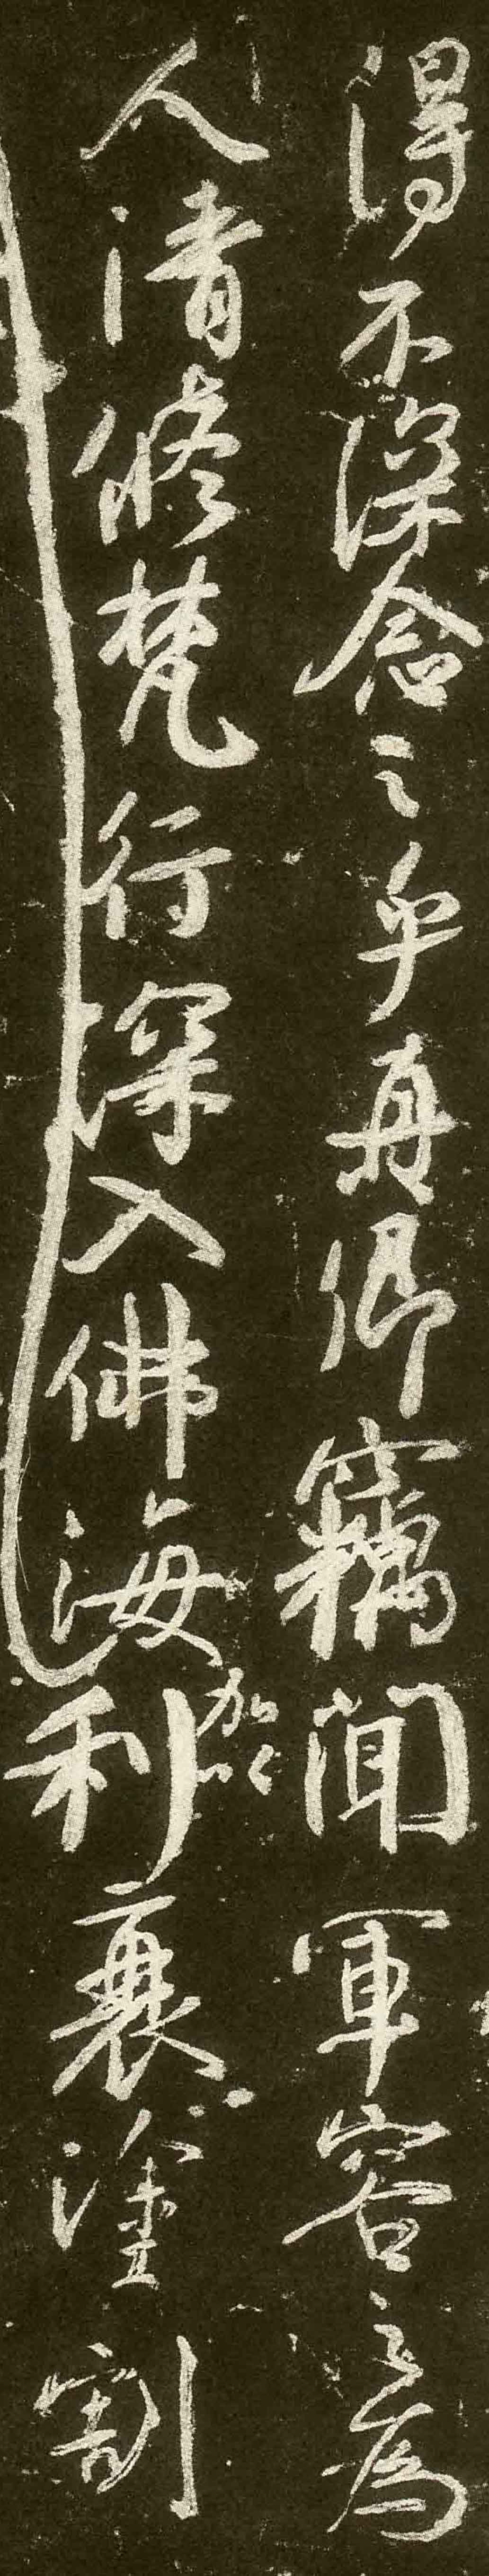 得不深念之乎真卿竊聞軍容之為
人清修梵行深入佛海加以利衰塗割